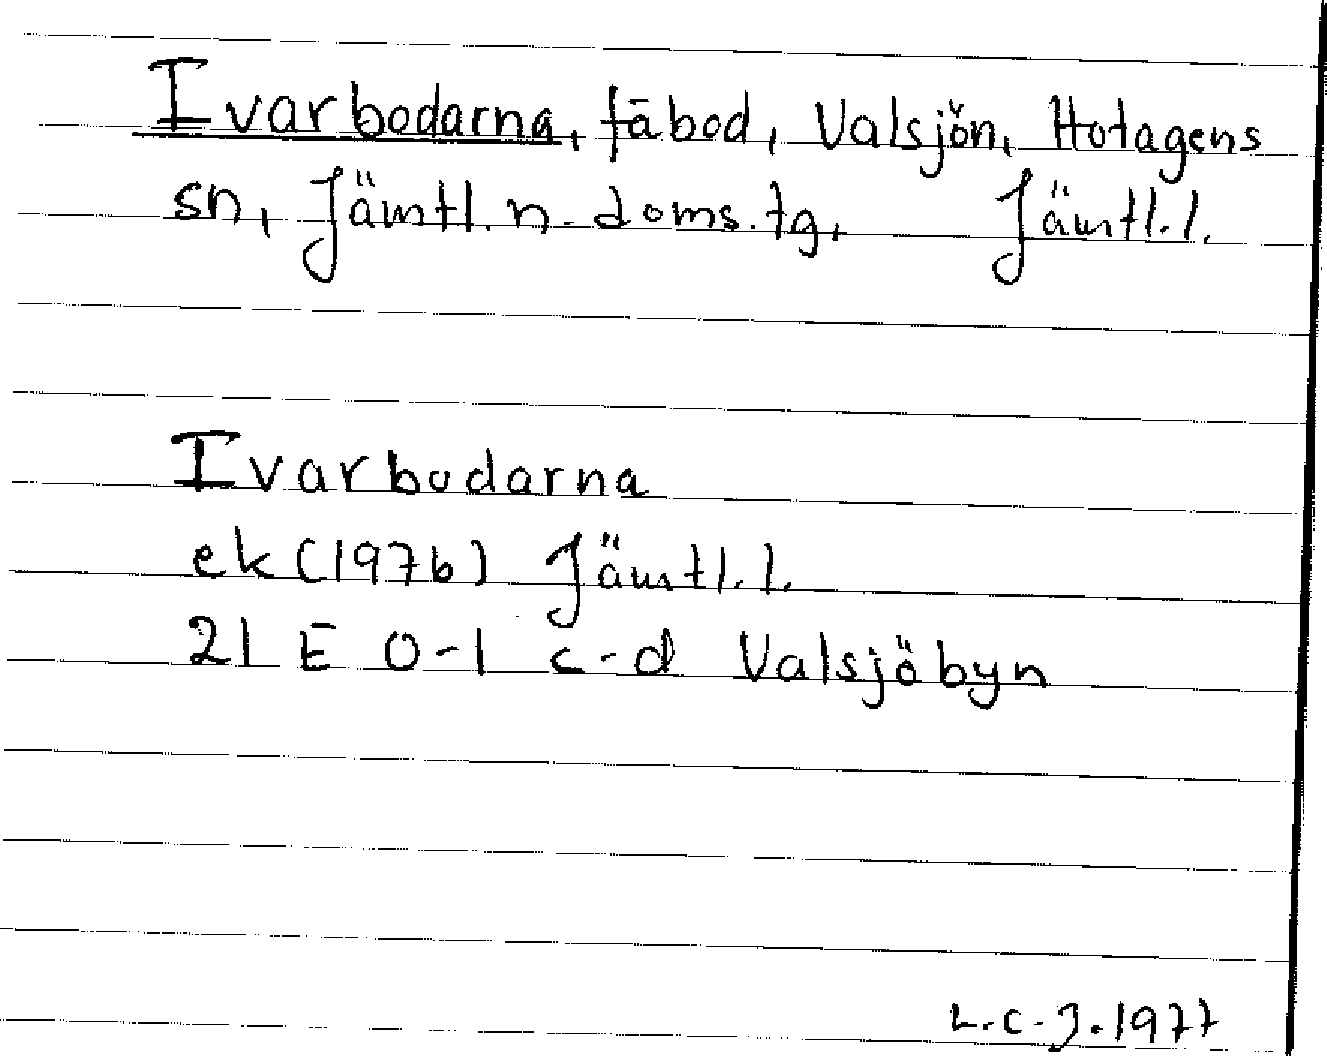 Ivarbodarna, fäbod, Valsjön, Hotagens
sn, Jämtl. n. doms. tg, Jämtl. l.
Ivarbodarna
ek (1976) Jämtl. l.
21 E 0-1 c-d Valsjöbyn
L.C.J. 1977